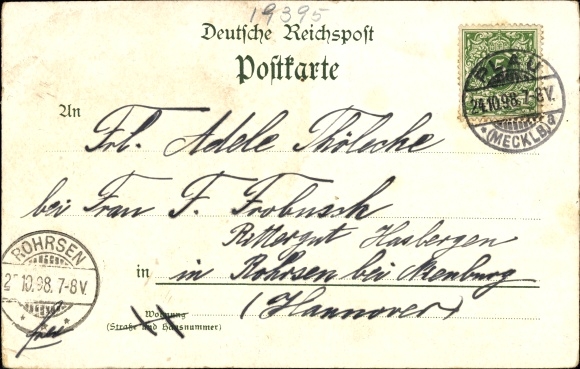 19395
Deutsche Reichspost
Postkarte
An
Frl. Adele Thölecke
bei Frau F. Frobusch
Rittergut Hasbergen
in in Rohrsen bei Nienburg
(Hannover)
Wohnung
(Straße und Hausnummer)
PLAU
24.10.98.7-8V.
*(MECKLB.)a
ROHRSEN
2 .10.98.7-8V.
frei